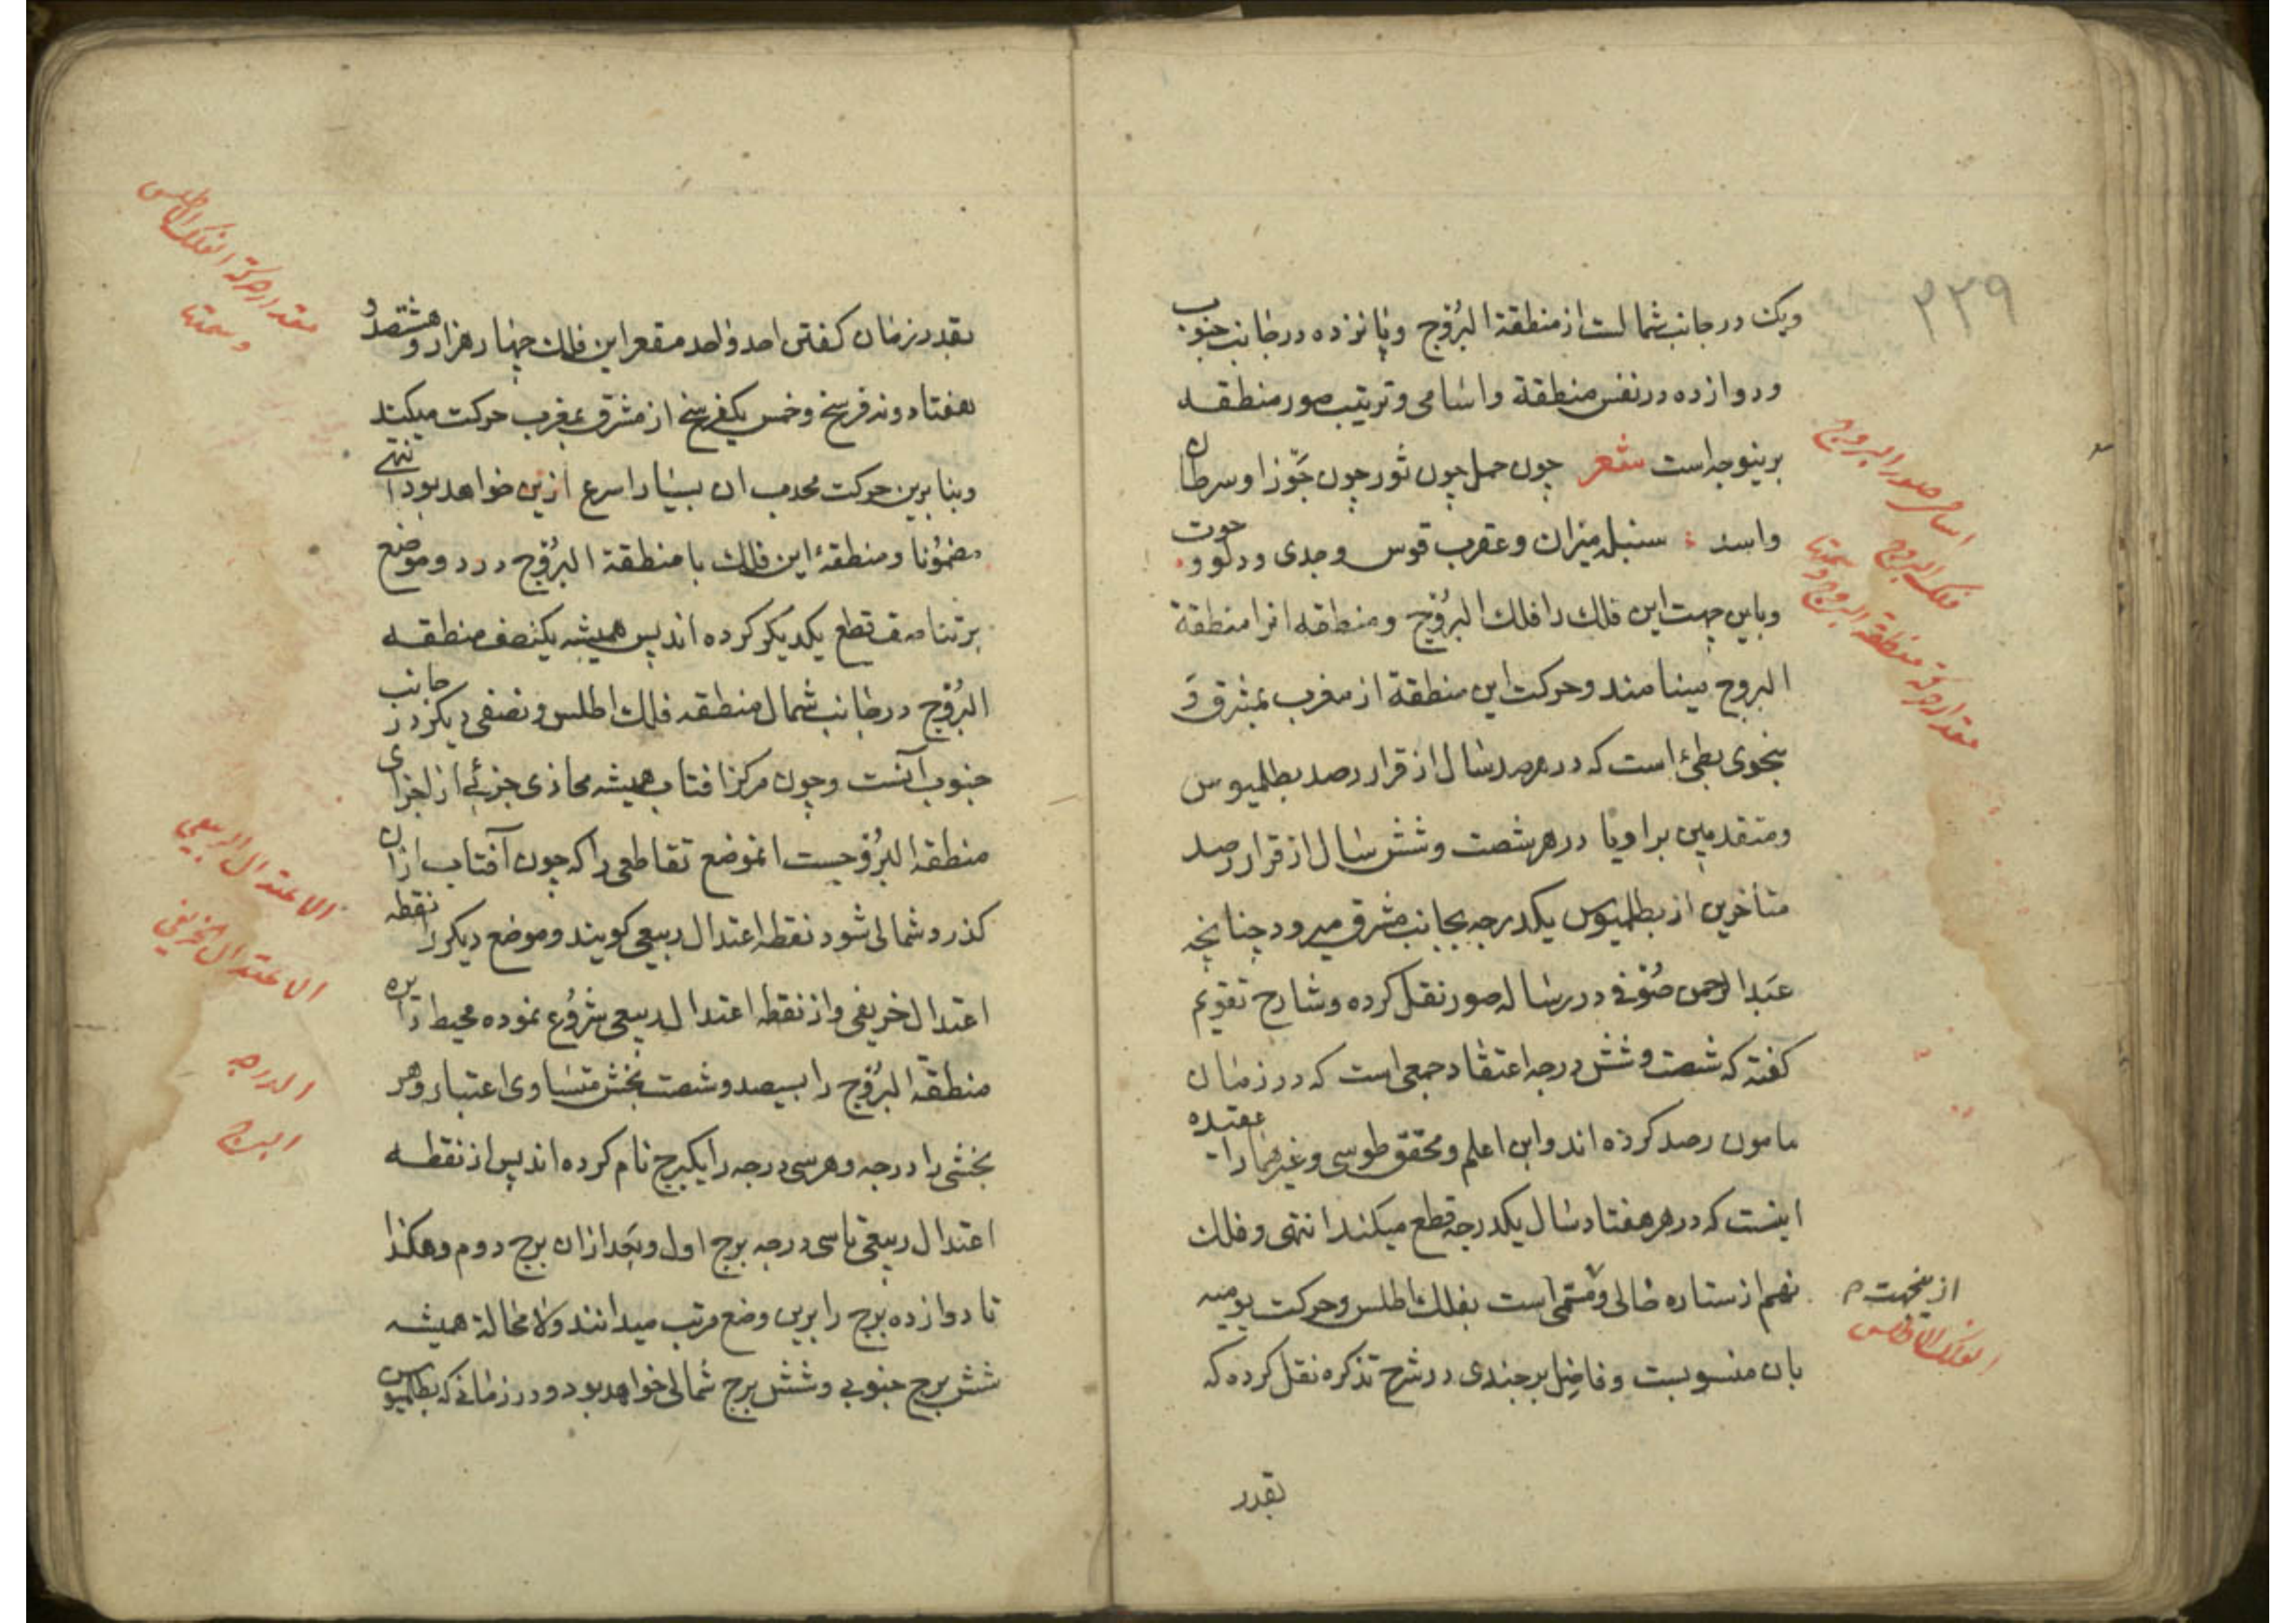 ۲۳۹
ویک در جانب شمالست از منطقة البُرُوج و پانزده در جانب جنوب
و دوازده در نفس منطقة و اسامی و ترتیب صور منطقه
برینوجه است شعر چون حمل چون ثور چون جَوزا و سرطان
و اسد سنبله میزان و عقرب قوس و جدی و دلو و حوت
و باین جهت این فلک را فلک البُرُوج و منطقه انرا منطقة
البروج مینامند و حرکت این منطقة از مغرب بمشرق وَ
بنحوی بطئ است که در هر صد سال از قرار رصد بطلمیوس
و متقدمین بر او یا در هر شصت و شش سال از قرار رصد
متأخرین از بطلمیوس یکدرجه بجانب مشرق میرود چنانچه
عَبدالرحمن صُوفی در رساله صور نقل کرده و شارح تقویم
کفته که شصت و شش درجه اعتقاد جمعی است که در زمان
مامون رصد کرده اند و ابن اعلم و محقق طوسی و غیرهما را عقیده
اینست که در هر هفتاد سال یکدرجه قطع میکند انتهی و فلک
نهم از ستاره خالی و مسمّی است بفلک اطلس و حرکت یومیه
بان منسوبست و فاضل برجندی در شرح تذکره نقل کرده که
بقدر
اسامی صور البروج
فلک البروج
مقدار حرکة منطقة البروج وسمتها
ازینجهت م
الفلک الاطلس
بقدر زمان کفتن احد واحد مقعر این فلک چهار هزار و هشتصد و
هفتاد و نه فرسخ و خمس یکفرسخ از مشرق بمغرب حرکت میکند
و بنا برین حرکت محدب ان بسیار اسرع ازین خواهد بود انتهی
مضمُونا و منطقهٔ این فلک با منطقة البرُوج در دو موضع
بر تناصف قطع یکدیکر کرده اند پس همیشه یکنصف منطقه
البُرُوج در جانب شمال منطقه فلک اطلس و نصفی دیکر در جانب
جنوب آنست و چون مرکز افتاب همیشه محاذی جزئی از اجزای
منطقة البُرُوجست انموضع تقاطعی را که چون آفتاب ازان
کذرد شمالی شود نقطه اعتدال ربیعی کویند و موضع دیکر را نقطه
اعتدال خریفی و از نقطه اعتدال ربیعی شرُوع نموده محیط دایره
منطقة البُرُوج را بسیصد و شصت بخش متساوی اعتبار و هر
بخشی را درجه و هر سی درجه را یکبرج نام کرده اند پس از نقطه
اعتدال ربیعی تا سی درجه برج اول و بَعد ازان برج دوم و هکذا
تا دوازده برج را برین وضع مرتب میدانند و لا محالة همیشه
شش برج جنوبی و شش برج شمالی خواهد بود و در زمانی که بطلمیوس
مقدار حرکة الفلک الاطلس
وسمتها
الاعتدال الربیعی
الاعتدال الخریفی
الدرجه
البرج